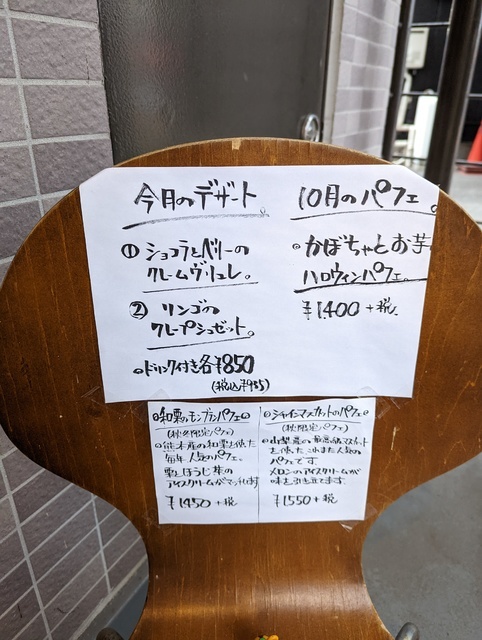 今月のデザート。
① ショコラとベリーの
クレームブリュレ。
② リンゴの
クレープシュゼット。
•ドリンク付き各¥850
(税込¥935)
10月のパフェ。
• かぼちゃとお芋
ハロウィンパフェ。
¥1,400 +税.
•和栗のモンブランパフェ•
(秋冬限定パフェ)
•熊本産の和栗を使た
毎年人気のパフェ。
栗とほうじ茶の
アイスクリームが
¥1450 +税
•シャインマスカットのパフェ•
(秋限定パフェ)
•山梨産の
を使たこれまた人気の
パフェです。
メロンのアイスクリームが
味を引き立てます。
¥1550 +税